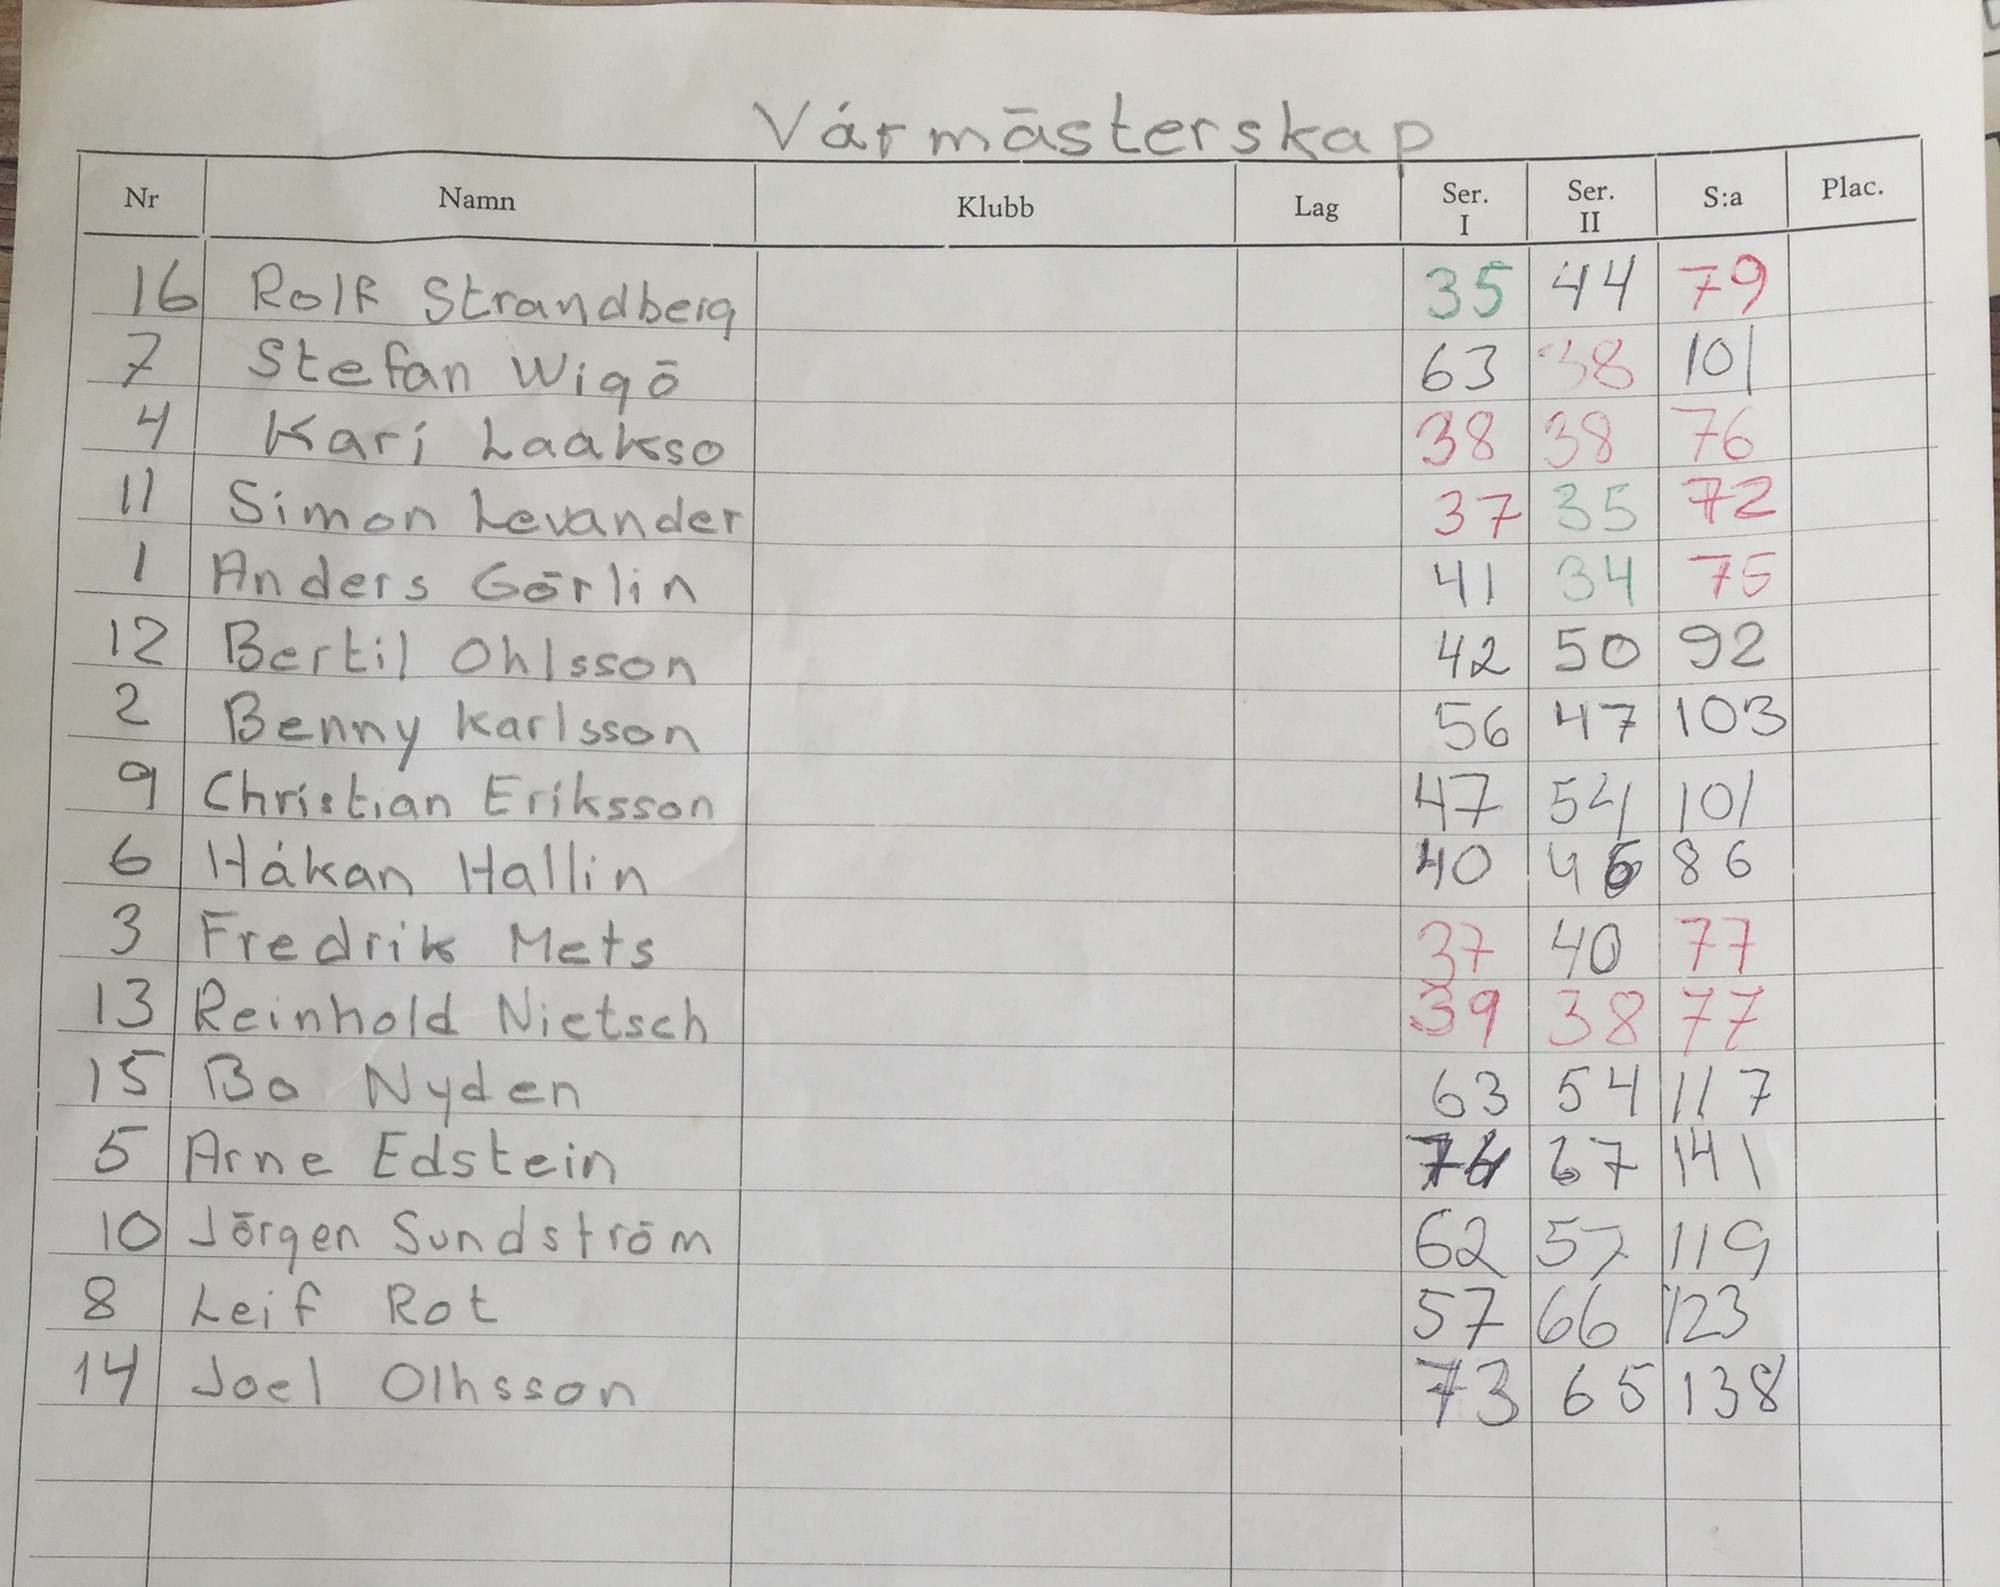 Vårmästerskap
Nr Namn Klubb Lag Ser. I Ser. II S:a Plac.
16 Rolf Strandberg 35 44 79
7 Stefan Wigö 63 38 101
4 Kari Laakso 38 38 76
11 Simon Levander 37 35 72
1 Anders Görlin 41 34 75
12 Bertil Ohlsson 42 50 92
2 Benny Karlsson 56 47 103
9 Christian Eriksson 47 54 101
6 Håkan Hallin 40 46 86
3 Fredrik Mets 37 40 77
13 Reinhold Nietsch 39 38 77
15 Bo Nyden 63 54 117
5 Arne Edstein 74 67 141
10 Jörgen Sundström 62 57 119
8 Leif Rot 57 66 123
14 Joel Olhsson 73 65 138